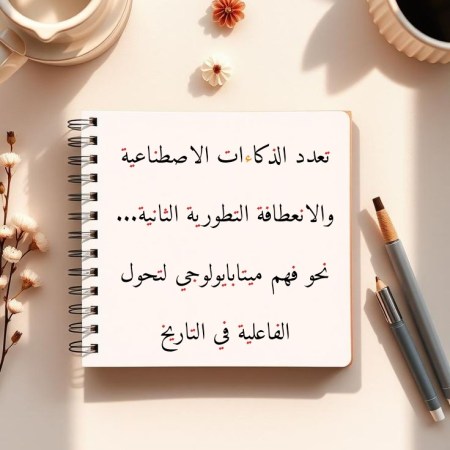 تعدد الذكاءات الاصطناعية
والانعطافة التطورية الثانية...
نحو فهم ميتابايولوجي لتحول
الفاعلية في التاريخ